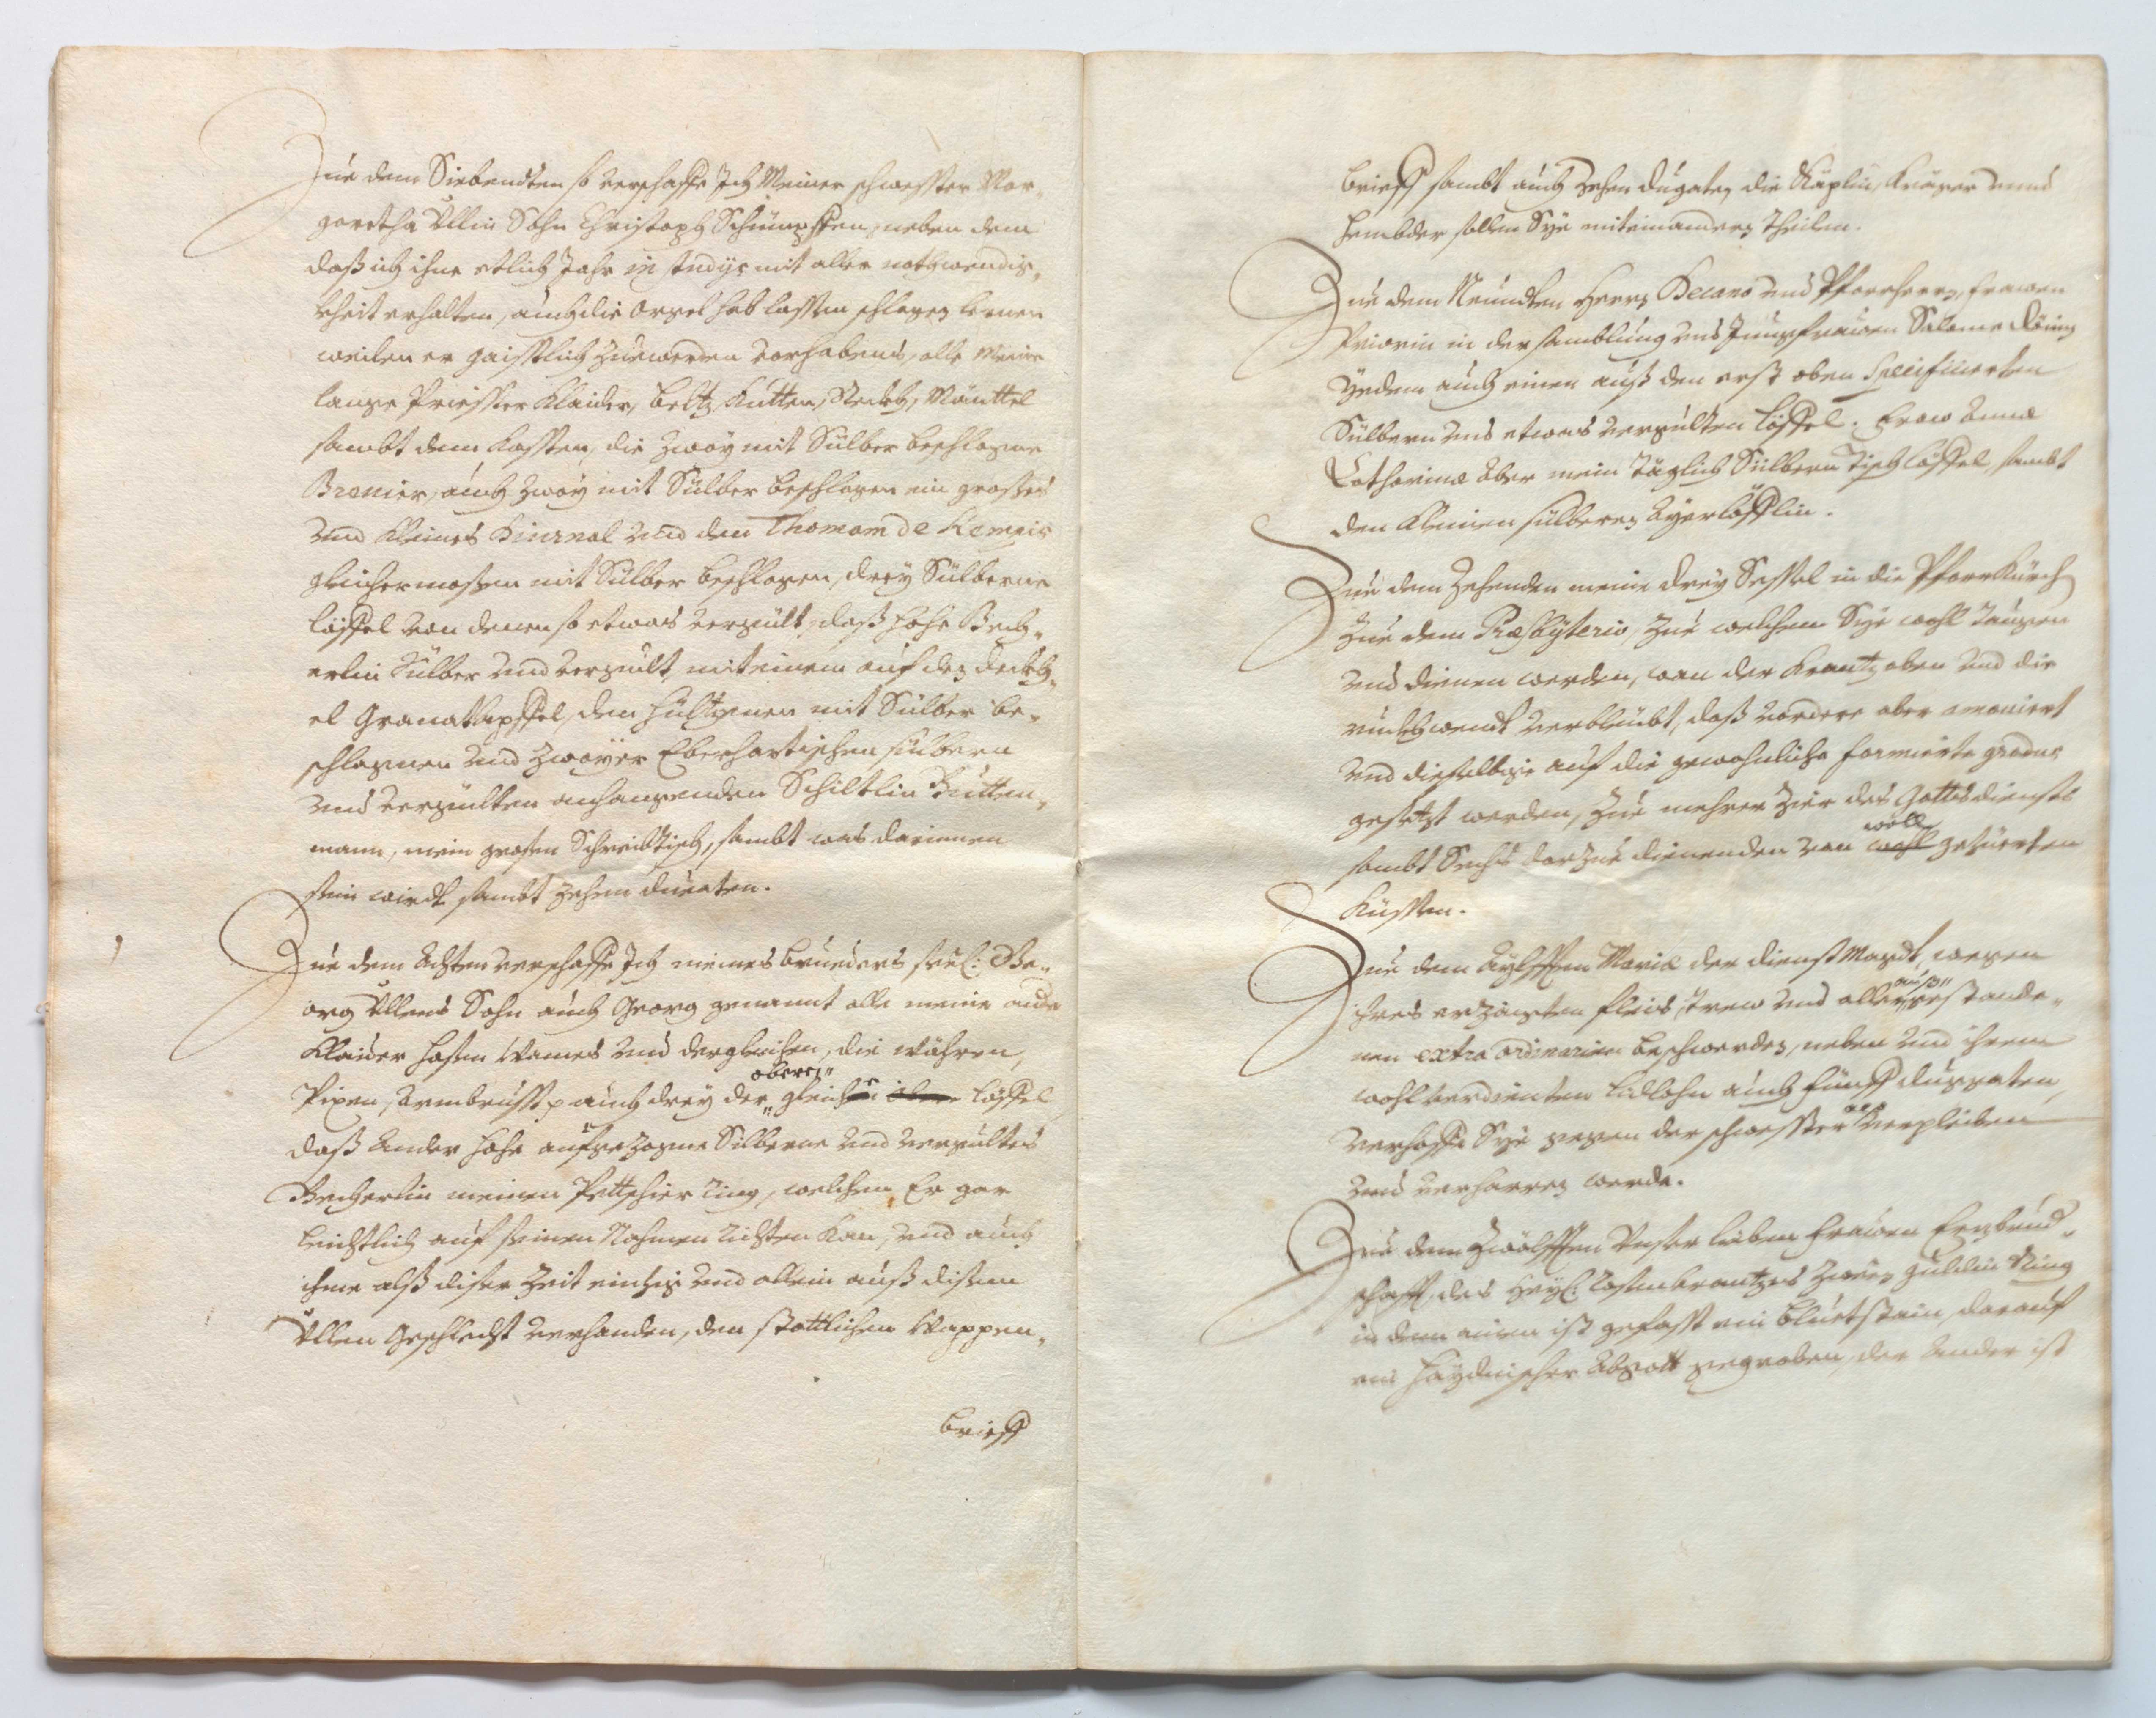 Zue dem Siebendten so verschaffe Ich Meiner schwester Mar-
garetha Ullin Sohn Christoph Schümpffen, neben dem
daß ich ihne etlich Jahr in studijs mit aller nothwendig-
kheit erhalten, auch die Orgel hab lassen schlagen lernen
weilen er gaistlich zuewerden vorhabens, alle meine
lange Priester Klaider, Beltz, Kutten, Röckh, Mänttel
sambt dem Kasten, die zwey mit Sülber beschlagene
Brevier, auch zwey mit Sülber beschlagen ein grosses
und kleines Diurnal und den Thomam de Kempis
gleichermassen mit Sülber beschlagen, drey Sülberne
löffel von denen so etwas vergült, daß hohe Bech-
erlin Sülber und vergult, mit einem auf den deckh-
el Granatapffel, den hültzenen mit Sülber be-
schlagenen und zwayer Eberhartischen sülbern
und vergulten anhangenden Schiltlin Butten-
mann, mein grosen Schreibtisch, sambt was darinnen
sein wirdt sambt zehen ducaten.
Zue dem Achten verschaffe Ich meines brueders seel: Ge-
org Ullens Sohn auch Georg genannt alle meine andere
Klaider hosen Wames und dergleichen, die währen,
oberen
Pixen, Armbrust auch drey der gleiche löffel
daß Ander hohe aufgezogne Silberne und vergultes
Becherlin meinen Pettschier ring, welchen Er gar
leichtlich auf seinen Nahmen richten kan, und auch
ihme alß diser Zeit eintzig und allein auß disem
Ullen Geschlecht verhanden, den stattlichen Wappen-
brieff
brieff sambt auch zehen dugaten, die Käplin, Kräger und
hembder sollen Sye miteinandern theilen.
Zue dem Neündten Herrn Decano und Pfarrherrn, frawen
Priorin in der samblung und Junpfrawen Salome
Yedem auch einen auß den erst oben Specificierten
Sülbern und etwas vergulten löffel. Fraw Anna
Catharina aber mein täglich Sülbern Tisch löffel, sambt
den kleinen sülbern Ayerlöfflin.
Zue dem Zehenden meine drey Sessel in die PfarrKürch
Zue dem Præsbyterio, zue welchem Sye wohl taugen
und dienen werden, wan der Krantz oben und die
ruckhwendt verbleibt, daß vordere aber amoviert
und dieselbige auf die gewohnliche formierte gradus
gesetzt werden, zue mehrer Zier des Gottsdiensts
woll
sambt Sechs darzue dienenden von wohl gefüerten
Küssen.
Zue dem Aylfften Maria der dienst Magdt, wegen
auß
ihres erzaigten fleis, trew und aller gestande-
nen extra ordinarien beschwerden, neben und ihrem
wohlverdienten Lidlohn auch fünff duggaten
verhoffe Sye gegen der schwester verpleiben
und verharren werde.
Zue dem Zwölfften Unser lieben Frawen Ertzbrud-
schafft, des Heyl: Rosenkrantzes zween guldin Ring
in dem ainen ist gefasst ein Bluetstain, darauf
ein Haydnischer Abgott gegraben, der Ander ist